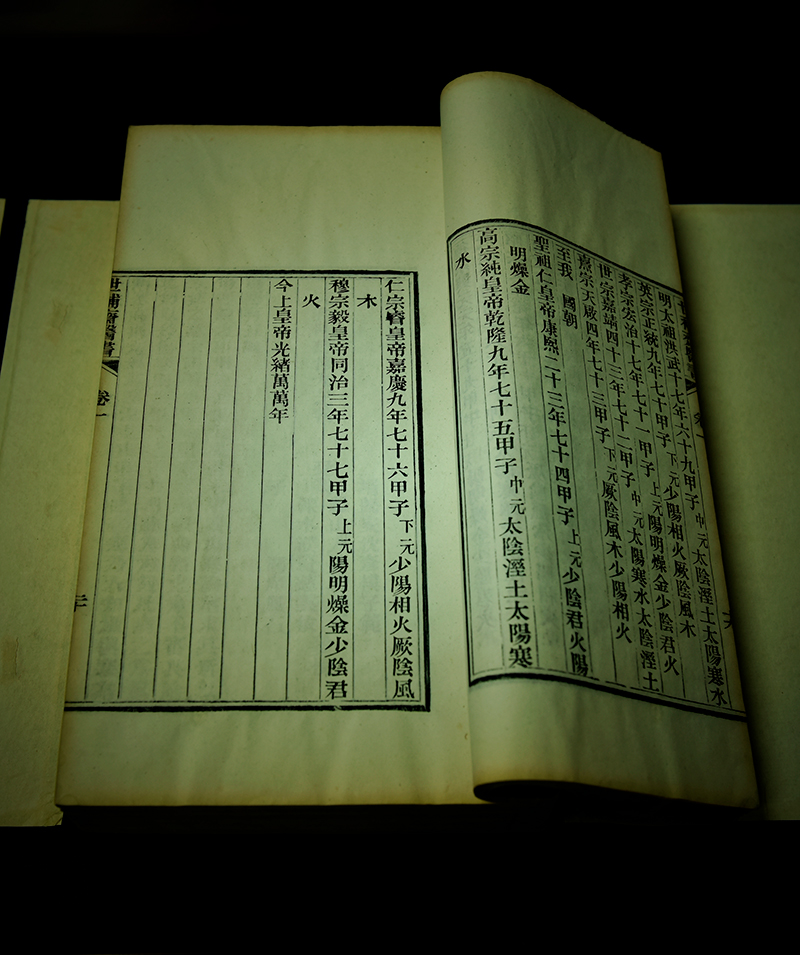 明太祖洪武十七年六十九甲子中元太陰溼土太陽寒水
英宗正統九年七十甲子下元少陽相火厥陰風木
孝宗宏治十七年七十一甲子上元陽明燥金少陰君火
世宗嘉靖四十三年七十二甲子中元太陽寒水太陰溼土
熹宗天啟四年七十三甲子下元厥陰風木少陽相火
至我 國朝
聖祖仁皇帝康熙二十三年七十四甲子上元少陰君火陽
明燥金
高宗純皇帝乾隆九年七十五甲子中元太陰溼土太陽寒
水
仁宗睿皇帝嘉慶九年七十六甲子下元少陽相火厥陰風
木
穆宗毅皇帝同治三年七十七甲子上元陽明燥金少陰君
火
今上皇帝光緒萬萬年
世補齋醫書 卷一